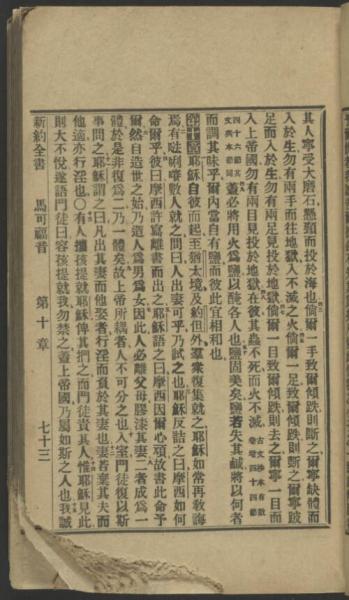 其人寧受大磨石懸頸而投於海也倘爾一手致爾傾跌則斷之爾寧缺體而
入於生勿有兩手而往地獄入不滅之火倘爾一足致爾傾跌則斷之爾寧跛
足而入於生勿有兩足見投於地獄倘爾一目致爾傾跌則去之爾寧一目而
入上帝國勿有兩目見投於地獄在彼其蟲不死而火不滅
蓋必將用火爲鹽以醃各人也鹽固美矣鹽若失其鹹將以何者
而調其味乎爾內當自有鹽而彼此宜相和也
耶穌自彼而起至猶太境及約但外羣衆復集就之耶穌如常再敎誨
焉有㕸唎㘔數人就之問曰人出妻可乎乃試之也耶穌反詰之曰摩西如何
命爾乎彼曰摩西許寫離書而出之耶穌語之曰摩西因爾心頑故書此命予
爾然自造世之始乃造人爲男爲女因此人必離父母膠漆其妻二者成爲一
體於是非復爲二乃一體矣故上帝所耦者人不可分之也入室門徒復以斯
事問之耶穌謂之曰凡出其妻而他娶者行淫而負於其妻也妻若棄其夫而
他適亦行淫也○有人攜孩提就耶穌俾其捫之而門徒責其人惟耶穌見此
則大不悅遂語門徒曰容孩提就我勿禁之蓋上帝國乃屬如斯之人也我誠
新約全書 馬可福音 第十章 七十三